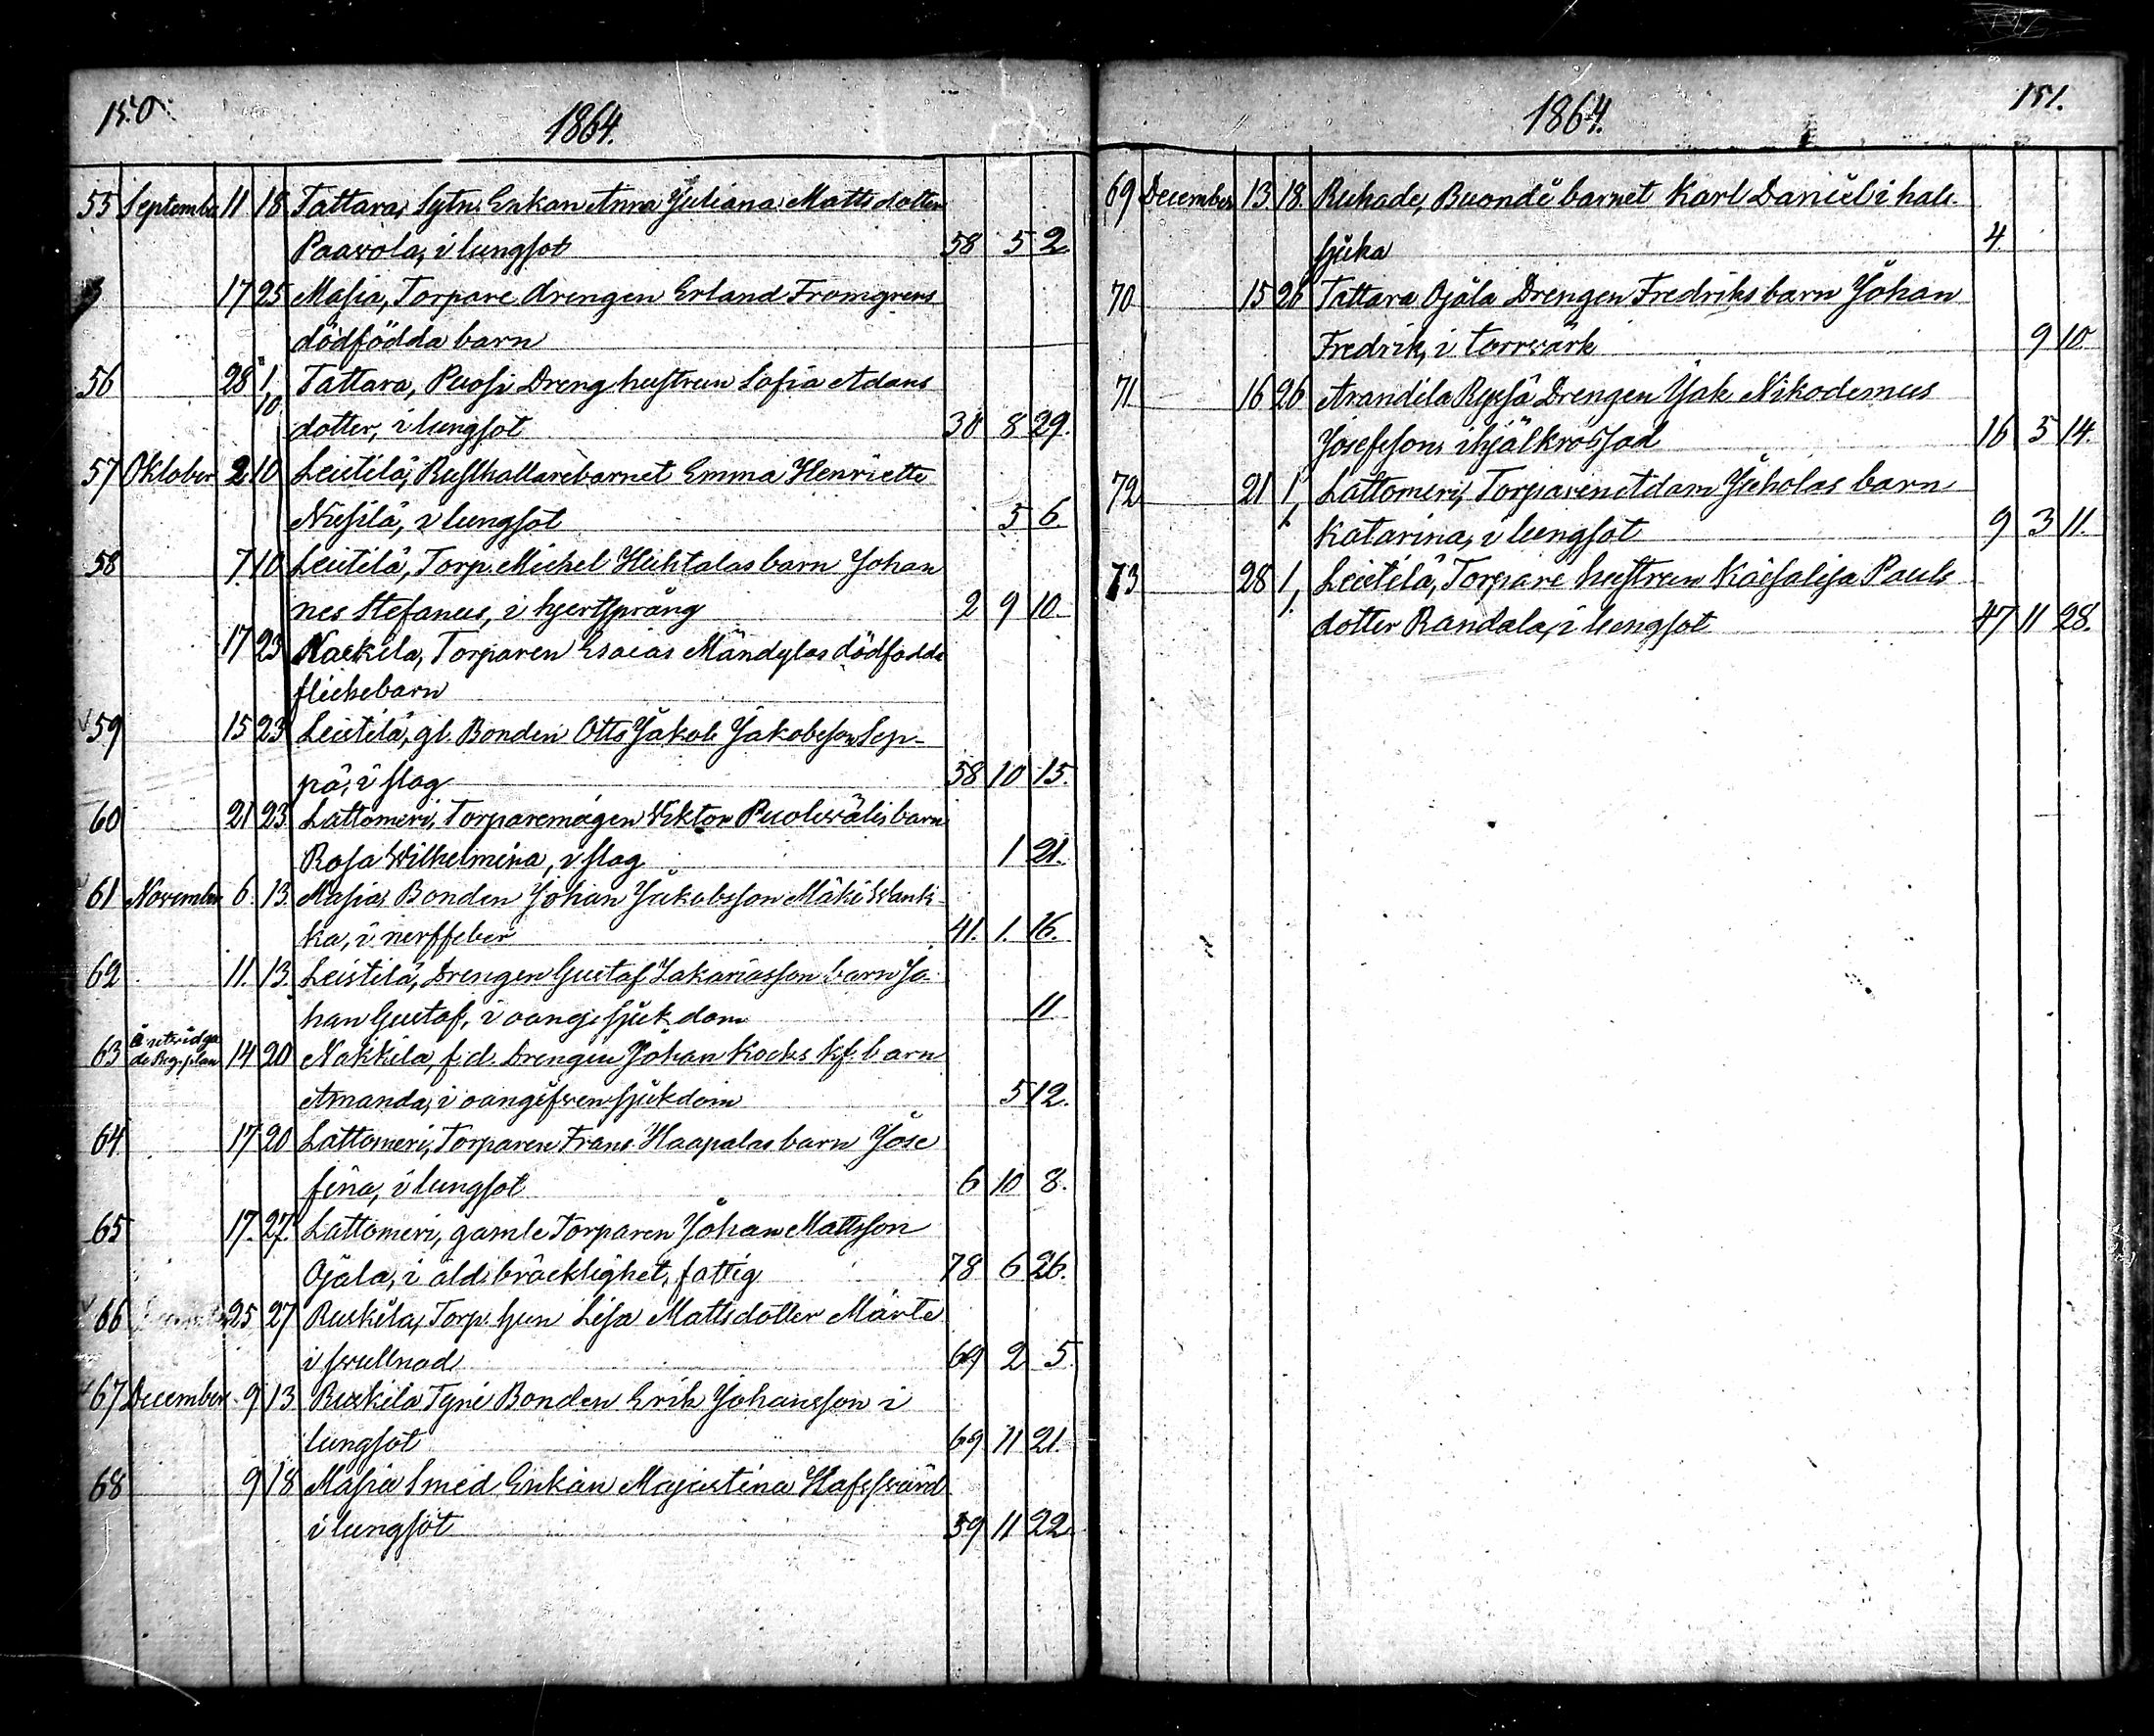 150.
1864.
55 September 11 18 Tattara, Sytn. Enkan Anna Juliana Mattsdotter
Paavola, i lungsot 58 5 2
17 25 Masia, Torpare drengen Erland Fromgrens
dödfödda barn
56 28 1/10 Tattara, Puosi Dreng hustrun Sofia Adams
dotter, i lungsot 30 8 29.
57 Oktober 2 10 Leistilä, Rusthallarebarnet Emma Henriette
i lungsot 5 6
58 7 10 Leistilä, Torp. Michel Huhtalas barn Johan
nes Stefanus, i hjertsprång 2 9 10
17 23 Nackila, Torparen Esaias Mändylas dödfödda
flickebarn
59 15 23 Leistilä, gl. Bonden Otto Jakob Jakobsson Sep-
pä, i slag 58 10 15.
60 21 23 Lattomeri, Torparemågen Viktor Puoliväli barn
Rosa Wilhelmina, i slag 1 21.
61 November 6. 13. Masia, Bonden Johan Jakobsson Mäki Wank-
ka, i nerffeber 41. 1. 16.
62 11. 13. Leistilä, Drengen Gustaf Zakariasson barn Jo-
han Gustaf, i oange sjukdom 11
63 14 20 Nakkila, f.d. Drengen Johan Kocks barn
Amanda, i oangifven sjukdom 5 12.
64 17 20 Lattomeri, Torparen Frans Haapalas barn Jose
fina, i lungsot 6 10 8.
65 17. 27. Lattomeri, gamle Torparen Johan Mattsson
Ojala, i åld. bräcklighet, fattig 78 6 26.
66 25 27 Ruskila, Torp. Lisa Mattsdotter Märte
i svullnad 69 2 5
67 December 9 13 Ruskila Tyni Bonden Erik Johansson i
lungsot 69 11 21.
68 9 18 Masia Smed Enkan Majastina
i lungsot 59 11 22
151.
1864.
69 December 13. 18. Buonde barnet Karl Daniel i hals-
sjuka 4
70 15 26 Tattara Ojala Drengen Fredriks barn Johan
Fredrik, i torrvärk 9 10
71 16 26 Arandila Ryssä Drengen Isak Nikodemus
Josefsson, ihjälkrossad 16 5 14.
72 21 1/1 Lattomeri, Torparen Adam barn
Katarina, i lungsot 9 3 11.
73 28 1/1. Leistilä, Torpare hustrun Kaisalisa Pauls
dotter Randala, i lungsot 47 11 28.